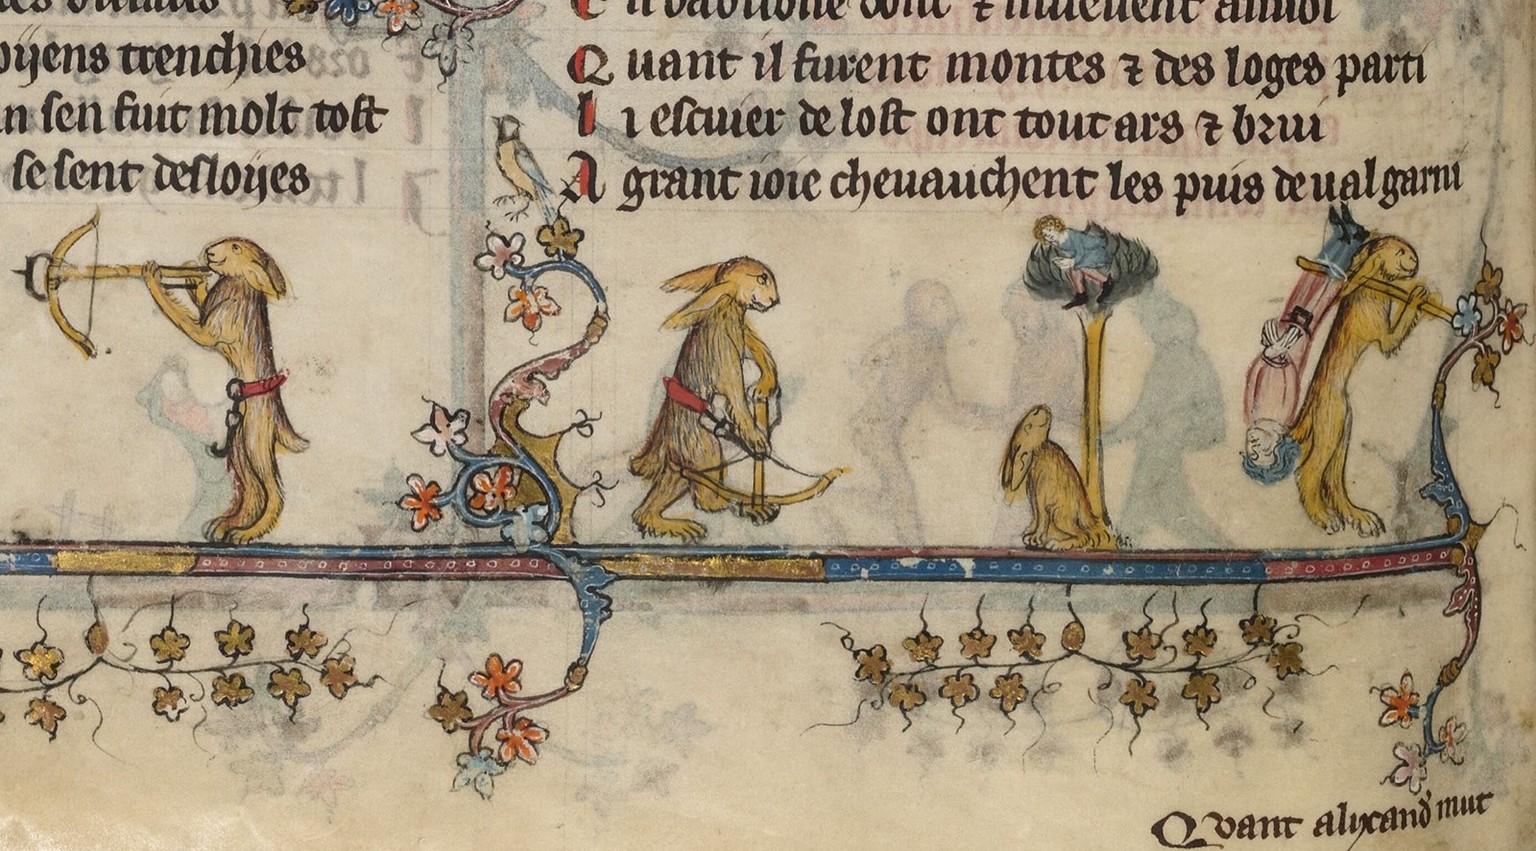 trenchies
sen fuit molt tost
se sent desloijes
Quant il furent montes ⁊ des loges parti
li escuier de lost ont tout ars ⁊ brui
A grant ioie cheuauchent les puis de ual garni
Quant alixand' mut